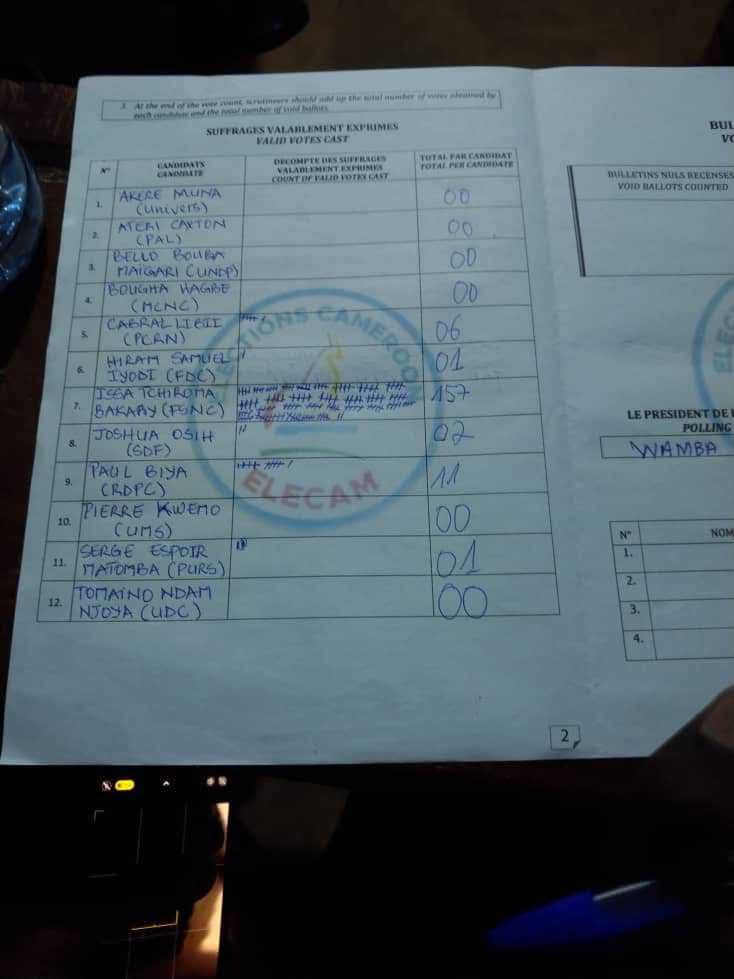 3. At the end of the vote count, scrutineers should add up the total number of votes obtained by
each candidate and the total number of void ballots.
SUFFRAGES VALABLEMENT EXPRIMES
VALID VOTES CAST
N°
CANDIDATS
CANDIDATE
DECOMPTE DES SUFFRAGES
VALABLEMENT EXPRIMES
COUNT OF VALID VOTES CAST
TOTAL PAR CANDIDAT
TOTAL PER CANDIDATE
1. AKERE MUNA 00
(Univers)
2. ATEKI CAXTON 00
(PAL)
3. BELLO BOUBA 00
MAIGARI (UNDP)
4. BOUGHA HAGBE 00
(MCNC)
5. CABRAL LIBII 06
(PCRN)
6. HIRAM SAMUEL 01
IYODI (FDC)
7. ISSA TCHIROMA 157
BAKARY (FSNC)
8. JOSHUA OSIH 02
(SDF)
9. PAUL BIYA 11
(RDPC)
10. PIERRE KWEMO 00
(UMS)
11. SERGE ESPOIR 01
MATOMBA (PURS)
12. TOMAINO NDAM 00
NJOYA (UDC)
ELECTIONS CAMEROON
ELECAM
2
BUL
VO
BULLETINS NULS RECENSES
VOID BALLOTS COUNTED
ELEC
LE PRESIDENT DE
POLLING
WAMBA
N° NOM
1.
2.
3.
4.